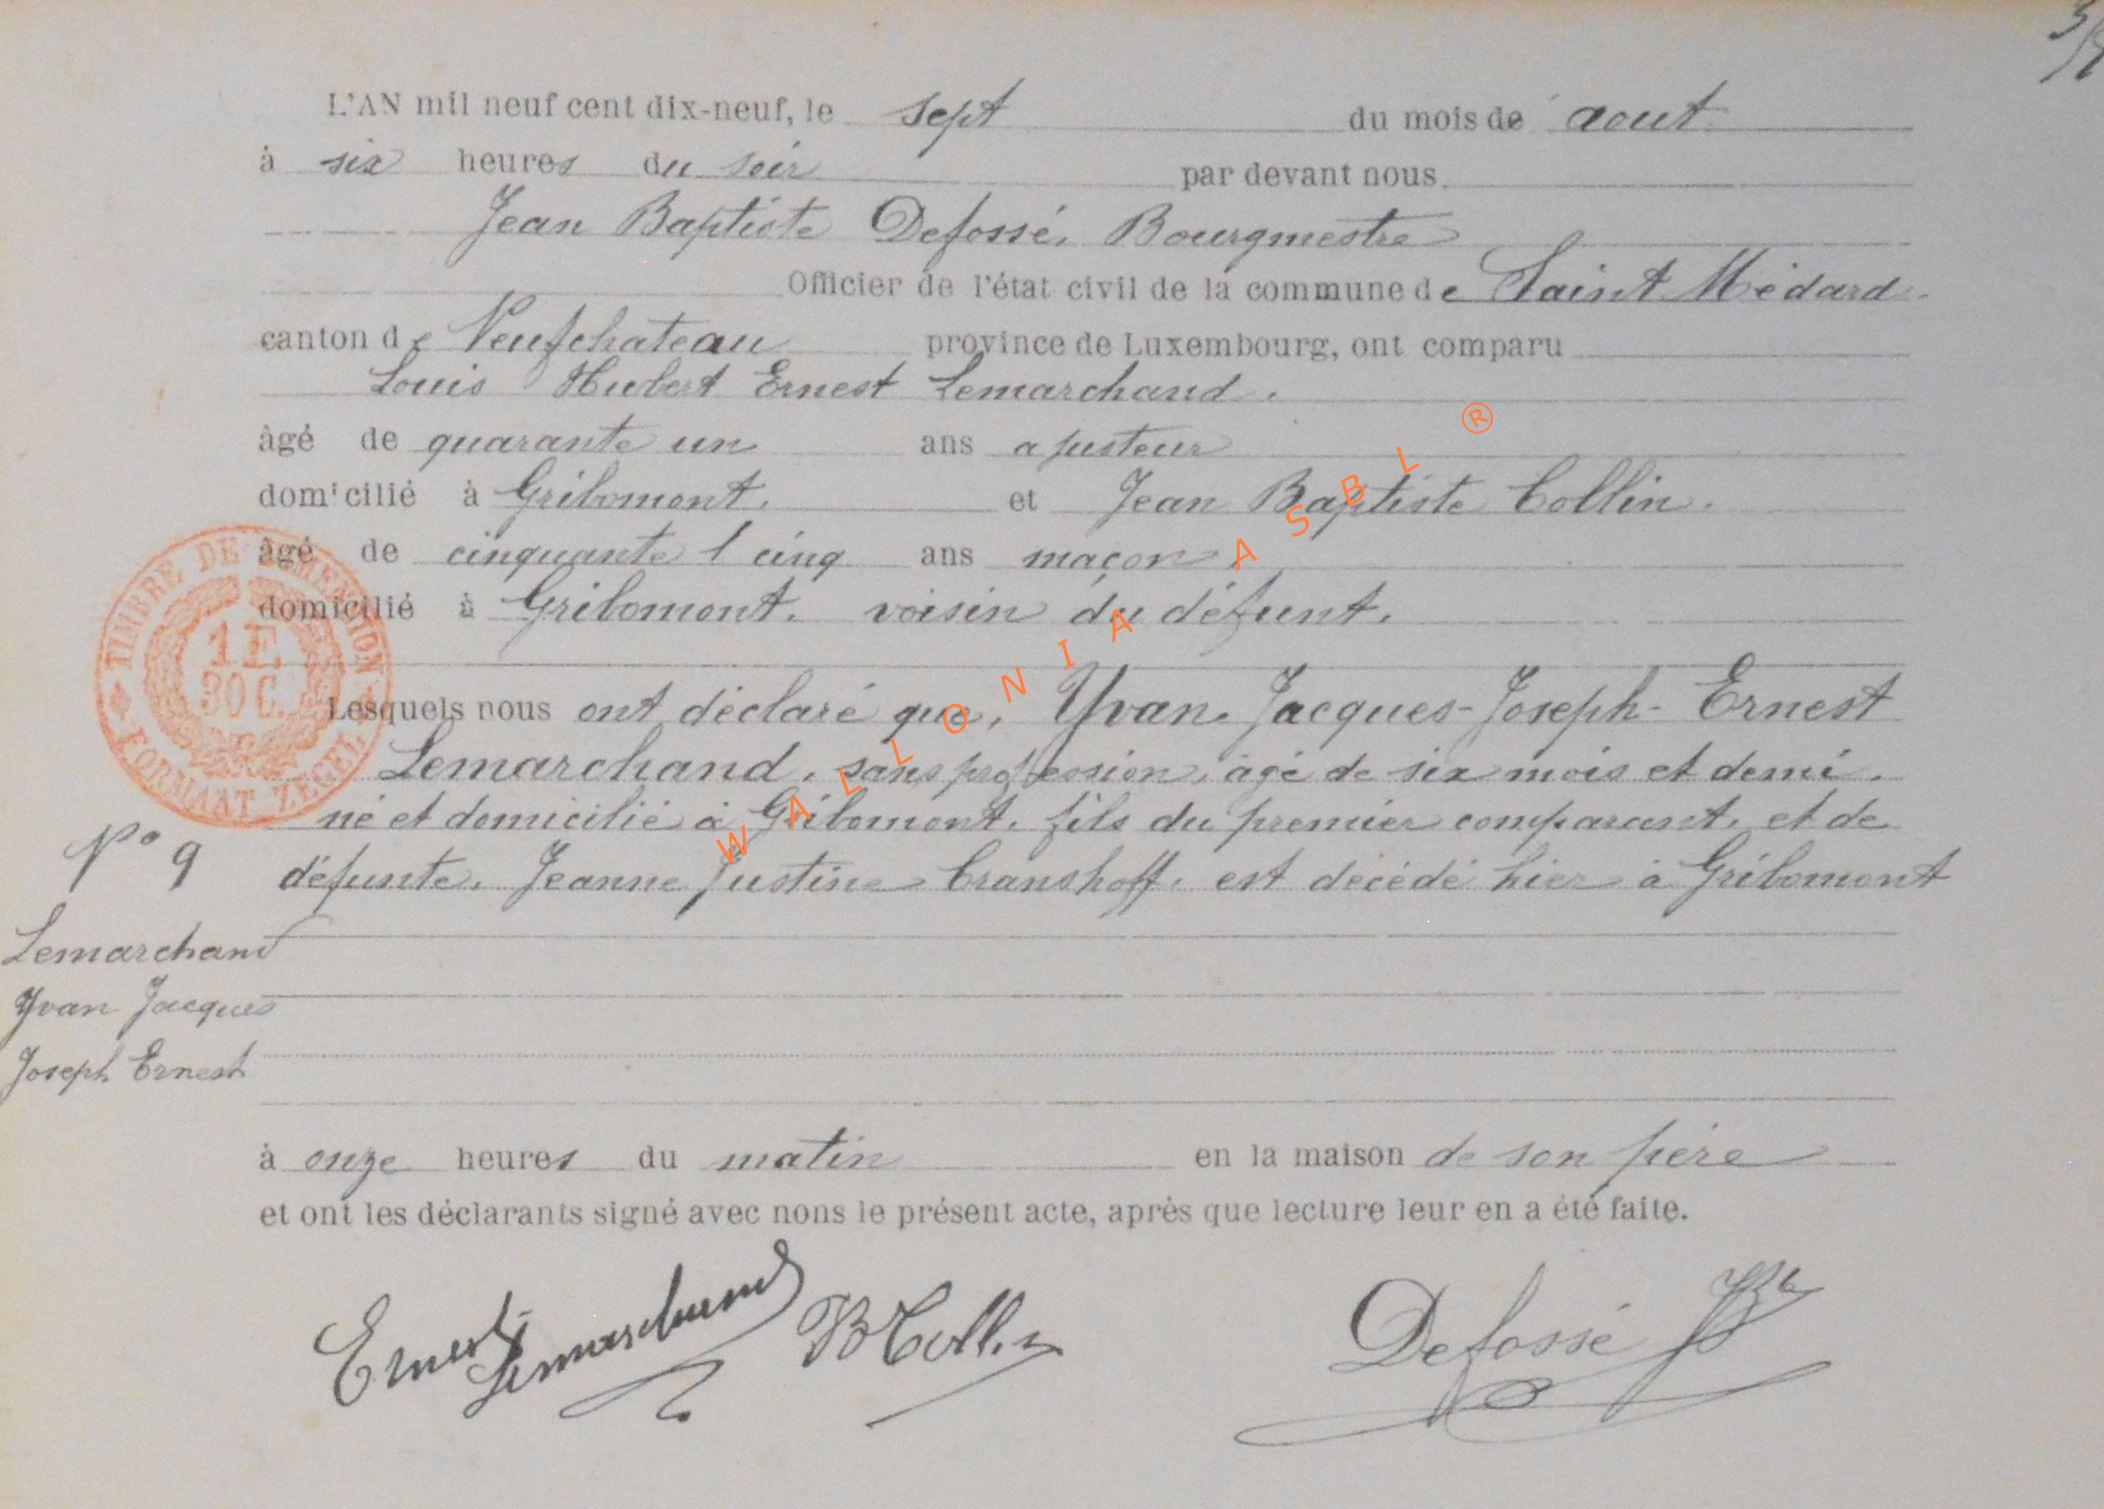 L'AN mil neuf cent dix-neuf, le sept du mois de aout
à six heures du soir par devant nous
Jean Baptiste Defossé, Bourgmestre
Officier de l'état civil de la commune de Saint Médard
canton de Neufchateau province de Luxembourg, ont comparu
Louis Hubert Ernest Lemarchand.
âgé de quarante un ans ajusteur
domicilié à Gribomont. et Jean Baptiste Collin.
âgé de cinquante cinq ans maçon
domicilié à Gribomont. voisin du défunt.
Lesquels nous ont déclaré que, Yvan Jacques-Joseph-Ernest
Lemarchand, sans profession, âgé de six mois et demi.
né et domicilié à Gribomont, fils du premier comparant, et de
défunte, Jeanne Justine Cranshoff, est décédé hier à Gribomont
à onze heures du matin en la maison de son père
et ont les déclarants signé avec nous le présent acte, après que lecture leur en a été faite.
Ernest Lemarchand JB Collin Defossé JB
N° 9
Lemarchand
Yvan Jacques
Joseph Ernest
TIMBRE DE DIMENSION
1 F.
30 C.
FORMAAT ZEGEL
WALLONIA ASBL ®